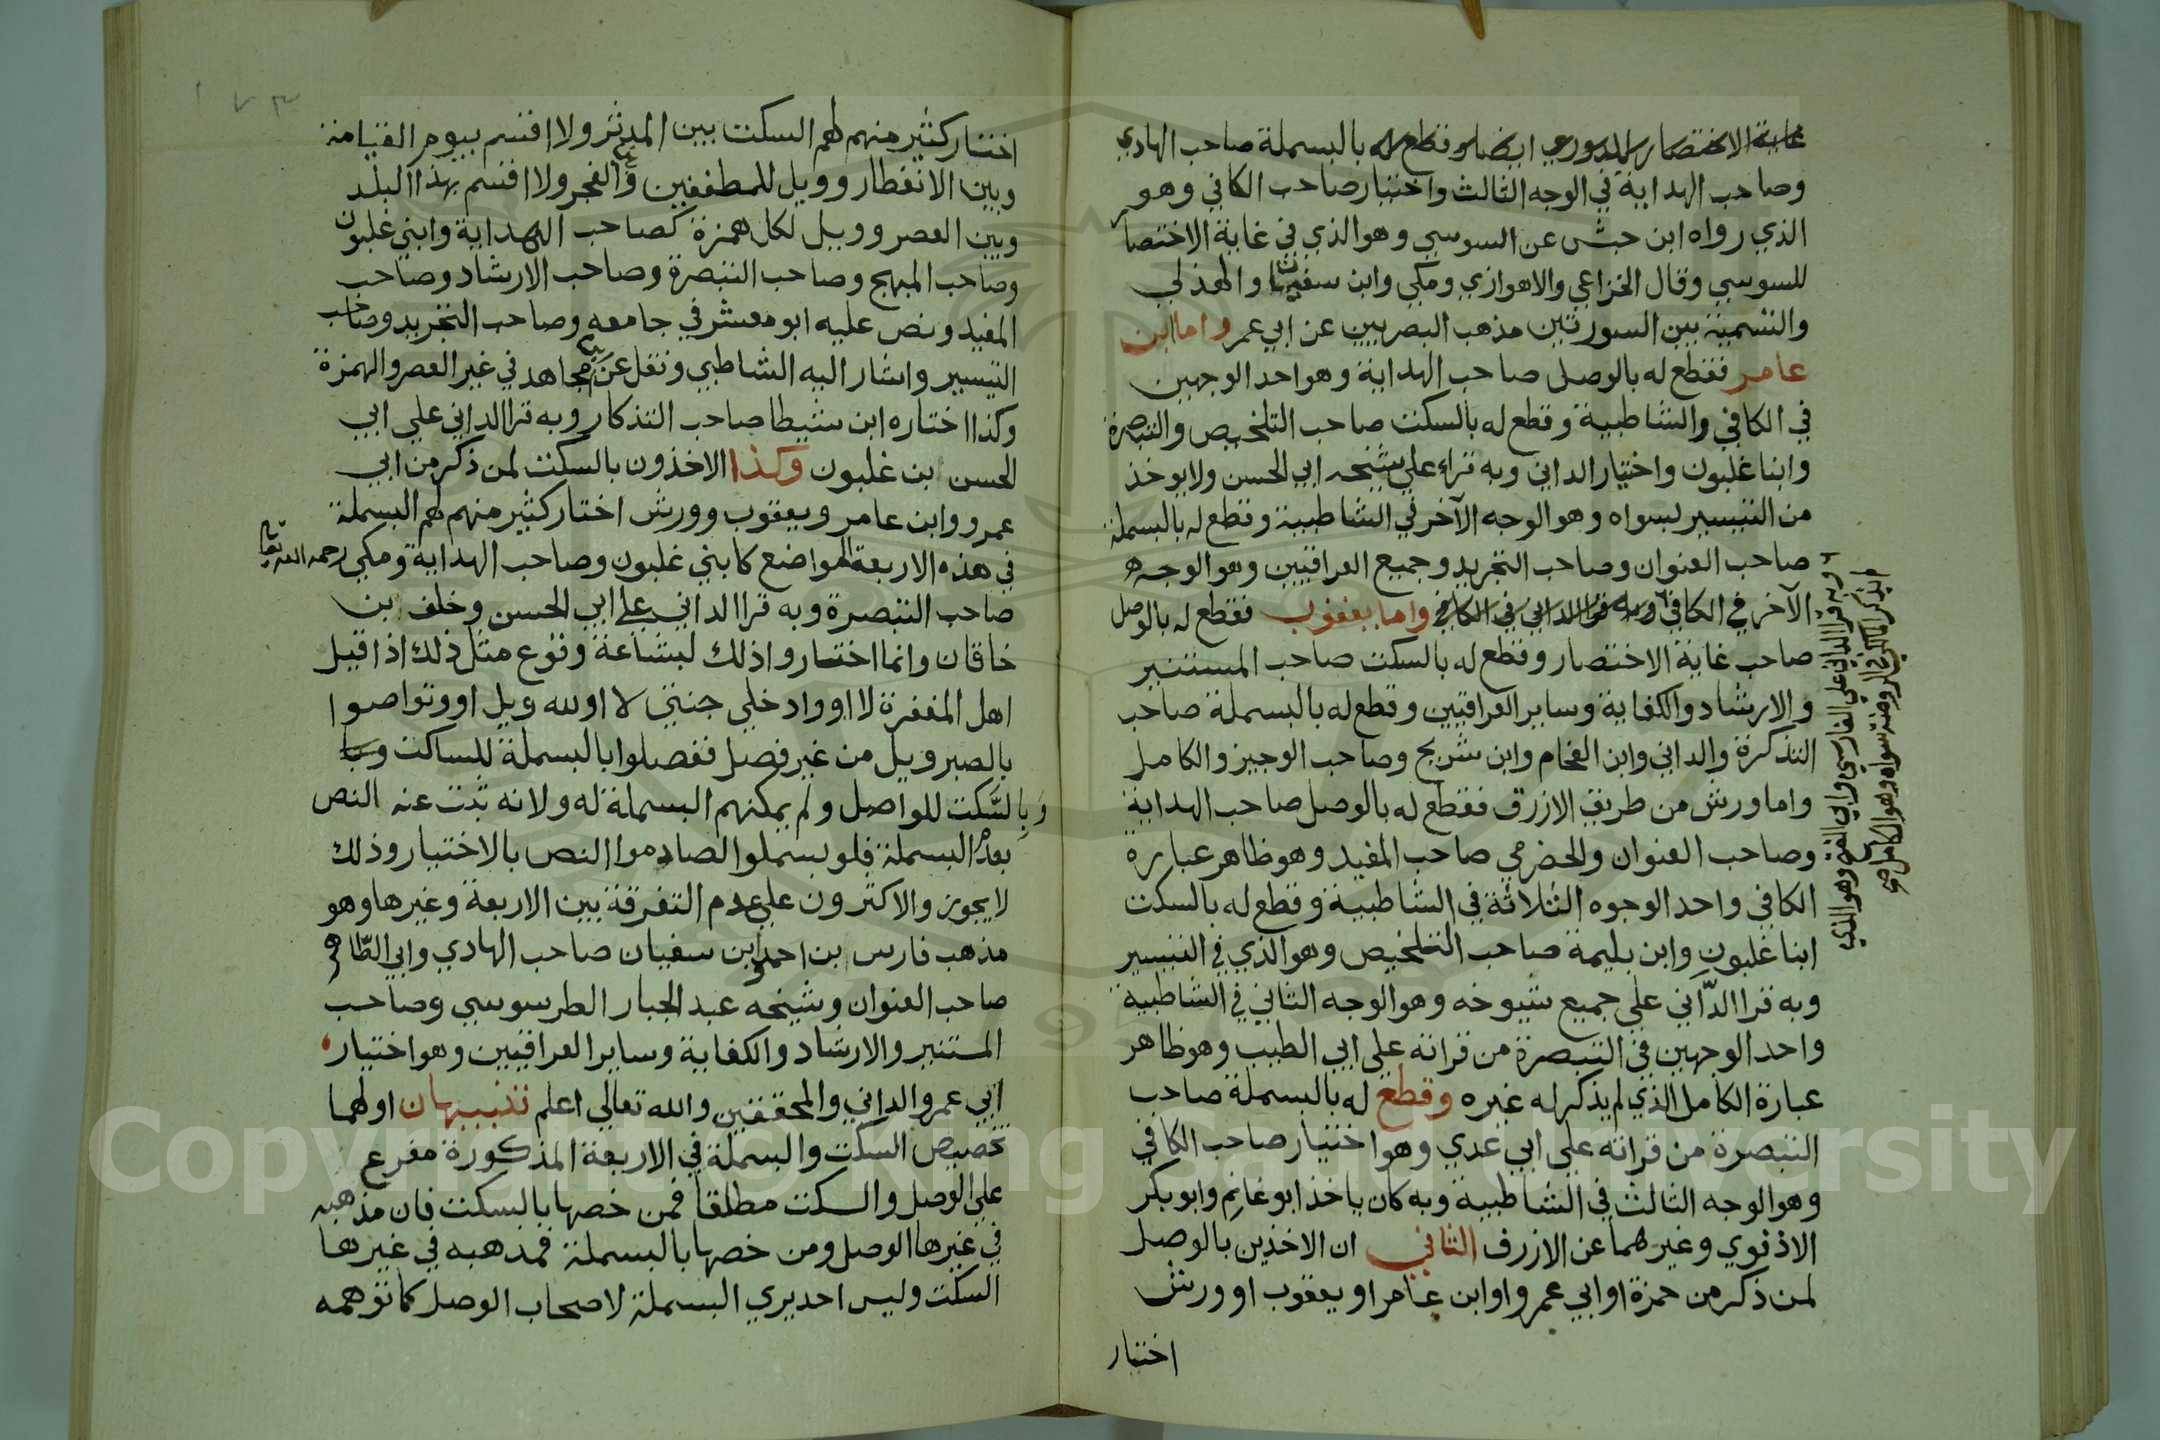 غاية الاختصار للدوري ايضا وقطع له بالبسملة صاحب الهادي
وصاحب الهداية في الوجه الثالث واختيار صاحب الكافي وهو
الذي رواه ابن حبش عن السوسي وهو الذي في غاية الاختصار
للسوسي وقال الخزاعي والاهوازي ومكي وابن سفين والهذلي
والتسمية بين السورتين مذهب البصريين عن ابي عمر واما ابن
عامر فقطع له بالوصل صاحب الهداية وهو احد الوجهين
في الكافي والشاطبية وقطع له بالسكت صاحب التلخيص والتبصرة
وابنا غلبون واختيار الداني وبه قراء علي شيخه ابي الحسن ولا يوخذ
من التيسير بسواه وهو الوجه الآخر في الشاطبية وقطع له بالبسملة
صاحب العنوان وصاحب التجريد وجميع العراقيين وهو الوجه
الآخر في الكافي وبه قرا الداني في الكافي واما يعقوب فقطع له بالوصل
صاحب غاية الاختصار وقطع له بالسكت صاحب المستنير
والارشاد والكفاية وساير العراقيين وقطع له بالبسملة صاحب
التذكرة والداني وابن الفحام وابن شريح وصاحب الوجيز والكامل
واما ورش من طريق الازرق فقطع له بالوصل صاحب الهداية
وصاحب العنوان والحضرمي صاحب المفيد وهو ظاهر عبارة
الكافي واحد الوجوه الثلاثة في الشاطبية وقطع له بالسكت
ابنا غلبون وابن بليمة صاحب التلخيص وهو الذي في التيسير
وبه قرا الدّاني علي جميع شيوخه وهو الوجه الثاني في الشاطبية
واحد الوجهين في التبصرة من قراته علي ابي الطيب وهو ظاهر
عبارة الكامل الذي لم يذكر له غيره وقطع له بالبسملة صاحب
التبصرة من قراته علي ابي عدي وهو اختيار صاحب الكافي
وهو الوجه الثالث في الشاطبية وبه كان ياخذ ابو غانم وابو بكر
الاذفوي وغيرهما عن الازرق الثاني ان الاخذين بالوصل
لمن ذكر من حمزة او ابي عمرو او ابن عامر او يعقوب او ورش
اختيار
وبه قرا الداني علي الفارسي وابي الفتح وهو الذي
لم يذكر المالكي في الروضة سواه وهو الكامل صح
اختيار كثير منهم لهم السكت بين المدثر ولا اقسم بيوم القيامة
وبين الانفطار وويل للمطففين و الفجر ولا اقسم بهذا البلد
وبين العصر وويل لكل همزة كصاحب الهداية وابني غلبون
وصاحب المبهج وصاحب التبصرة وصاحب الارشاد وصاحب
المفيد ونص عليه ابو معشر في جامعه وصاحب التجريد وصاحب
التيسير واشار اليه الشاطبي ونقل عن ابن مجاهد في غير العصر والهمزة
وكذا اختاره ابن شيطا صاحب التذكار وبه قرا الداني علي ابي
الحسن ابن غلبون وكذا الاخذون بالسكت لمن ذكر من ابي
عمرو وابن عامر ويعقوب وورش اختار كثير منهم لهم البسملة
في هذه الاربعة المواضع كابني غلبون وصاحب الهداية ومكي رحمه الله تعالي
صاحب التبصرة وبه قرا الداني علي ابي الحسن وخلف بن
خاقان وانما اختاروا ذلك لبشاعة وقوع مثل ذلك اذا قيل
اهل المغفرة لا او وادخلي جنتي لا او لله ويل او وتواصوا
بالصبر ويل من غير فصل ففصلوا بالبسملة للساكت
وبالسّكت للواصل ولم يمكنهم البسملة له ولانه ثبت عنه النص
بعدم البسملة فلو بسملوا لصادموا النص بالاختيار وذلك
لا يجوز والاكثرون علي عدم التفرقة بين الاربعة وغيرها وهو
مذهب فارس بن احمد وابن سفيان صاحب الهادي وابي الطّاهر
صاحب العنوان وشيخه عبد الجبار الطرسوسي وصاحب
المستنير والارشاد والكفاية وساير العراقيين وهو اختيار
ابي عمرو الداني والمحققين والله تعالي اعلم تنبيهان اولهما
تخصيص السكت والبسملة في الاربعة المذكورة مفرع
علي الوصل والسكت مطلقا فمن خصها بالسكت فان مذهبه
في غيرها الوصل ومن خصها بالبسملة فمذهبه في غيرها
السكت وليس احد يري البسملة لاصحاب الوصل كما توهمه
١٧٣
Copyright © King Saud University